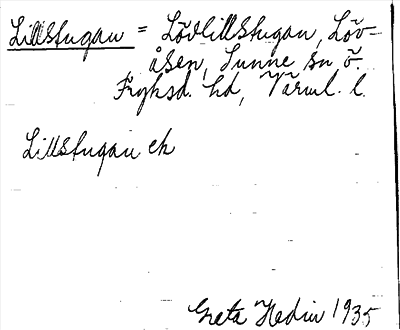 Lillstugan = Lövlillstugan, Löv-
åsen, Sunne sn ö.
Fryksd. hd, Värml. l.
Lillstugan ek
Greta Hedin 1935